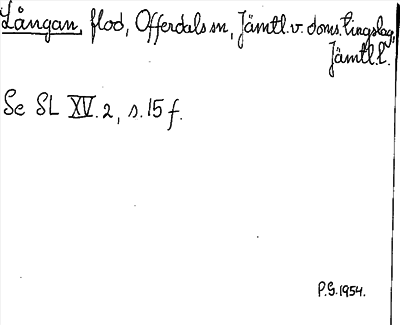 Långan, flod, Offerdals sn, Jämtl. v. doms. tingslag,
Jämtl. l.
Se SL XV. 2, s. 15 f.
P.G. 1954.